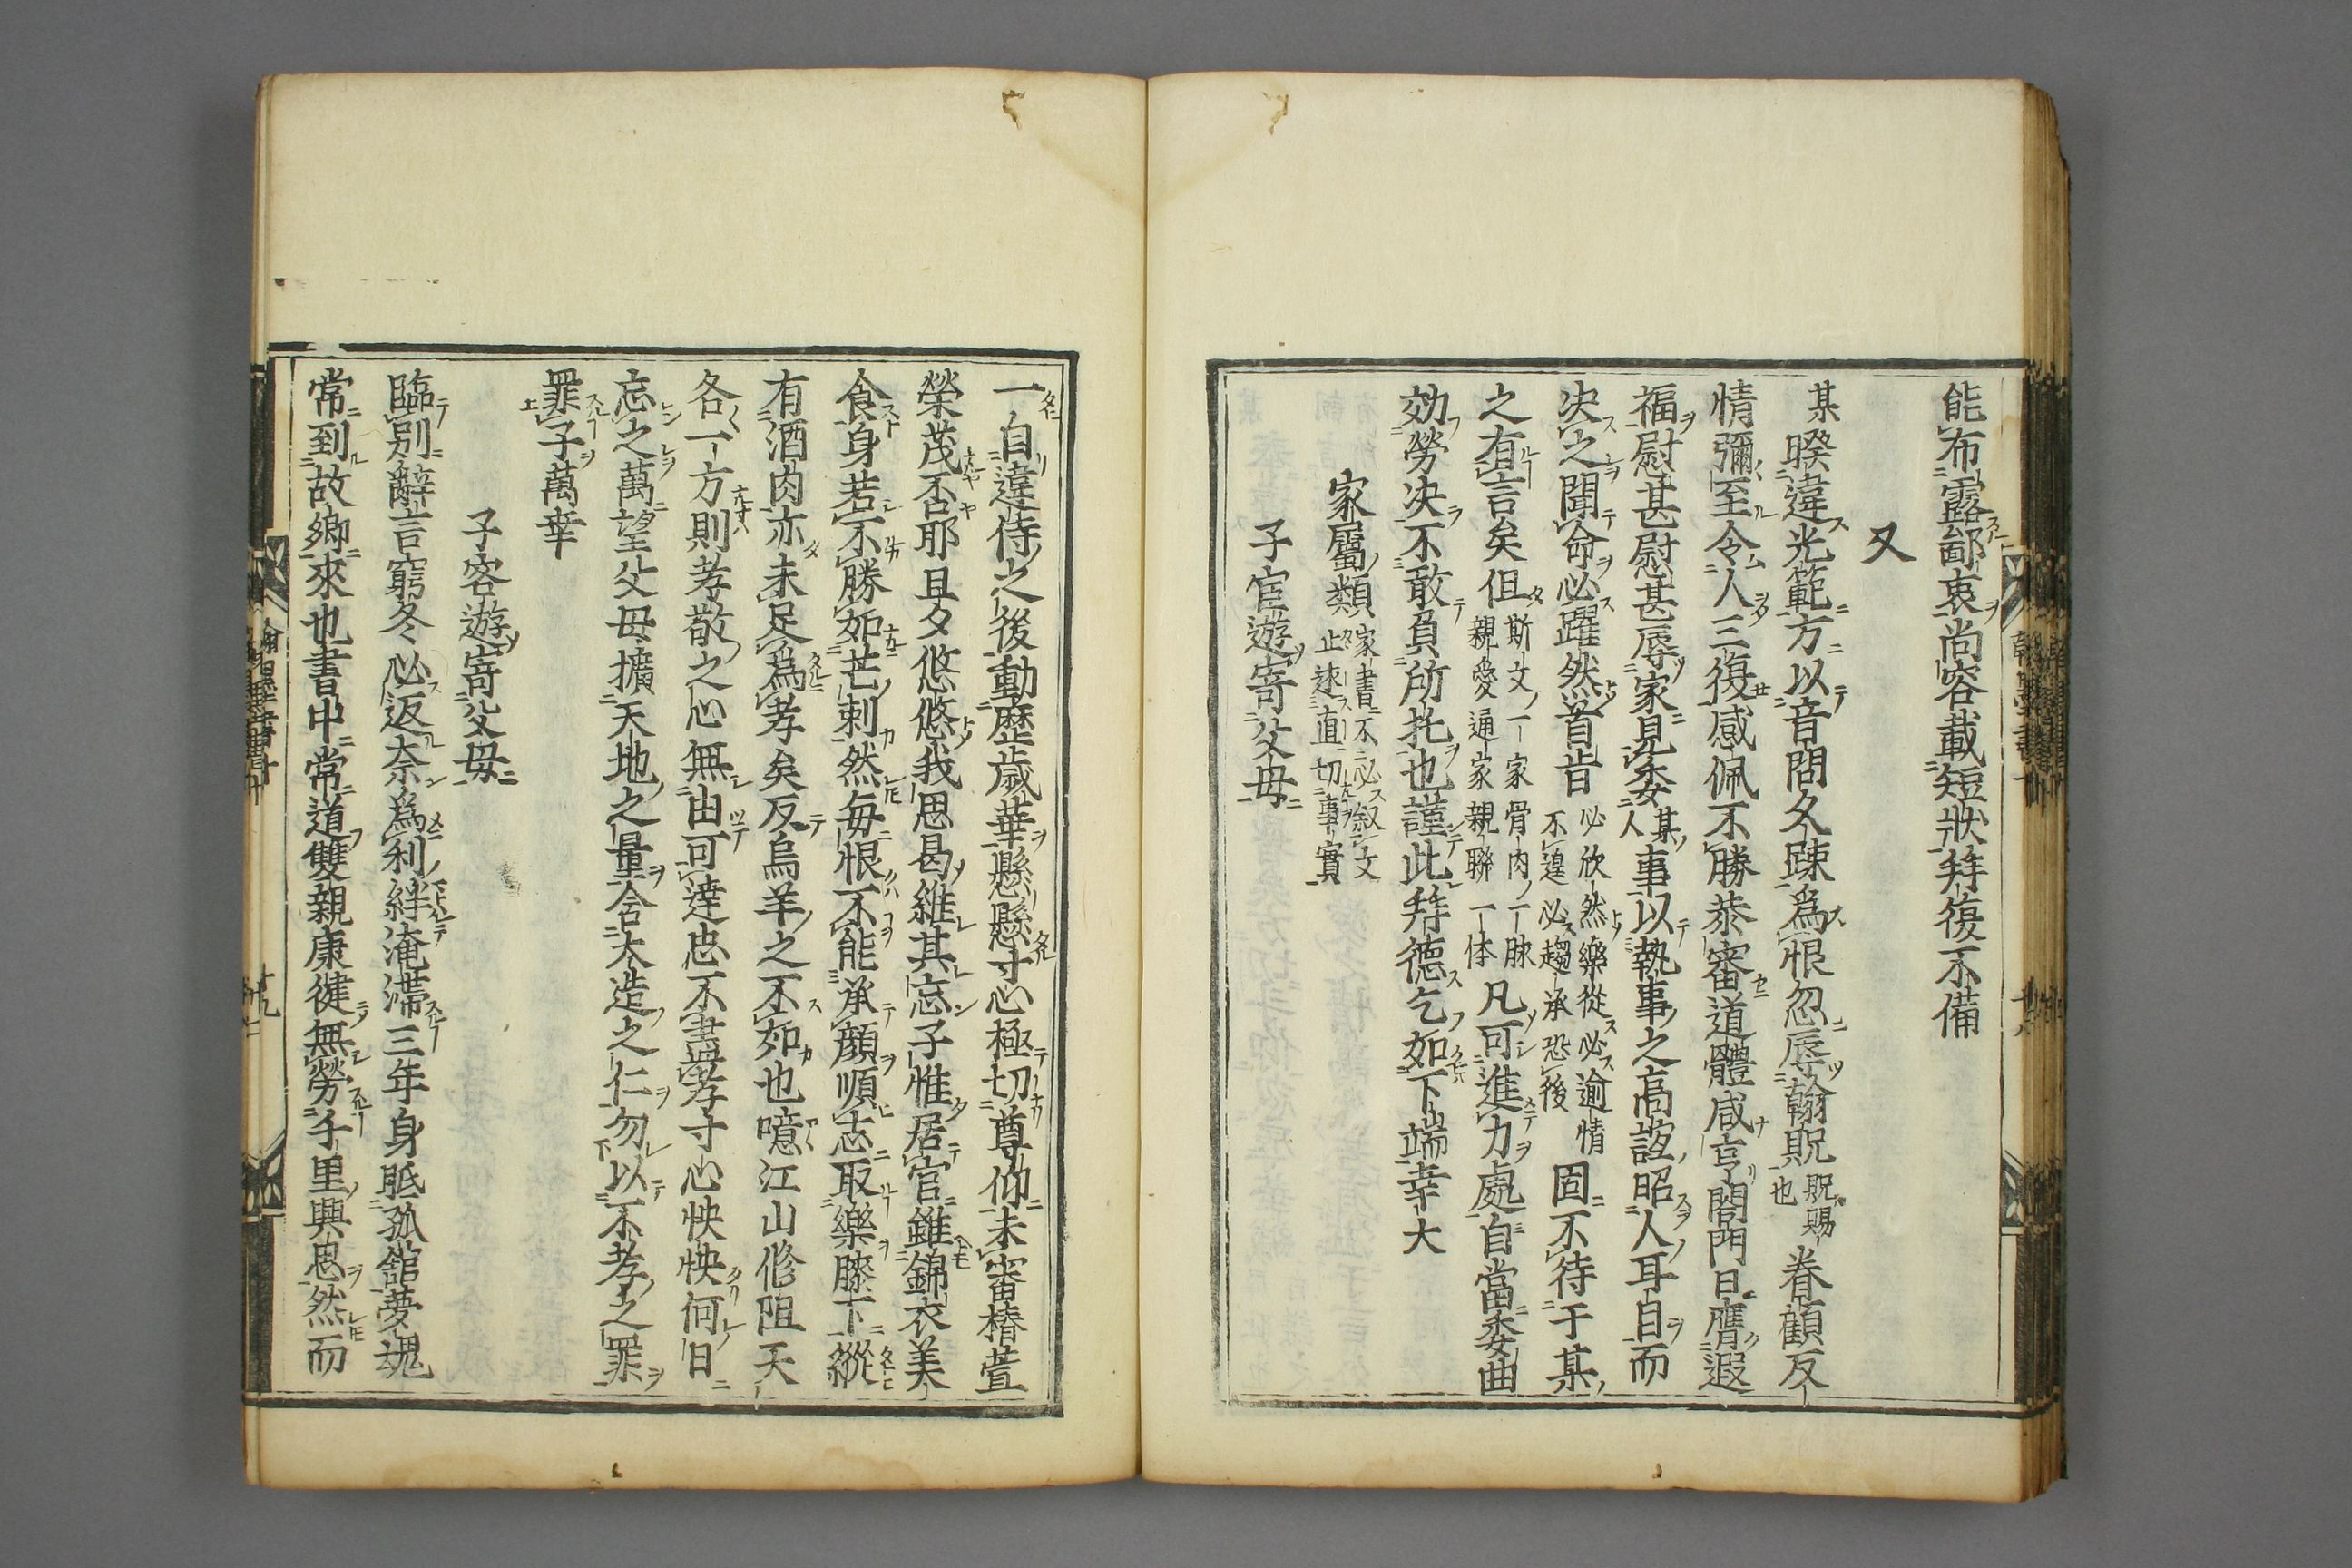 能布露鄙衷尚容載短狀拜復不備
又
某暌違光範方以音問久踈爲恨忽辱翰貺貺賜也眷顧反
情彌至令人三復感佩不勝恭審道體咸亨閤門日膺遐
福慰甚慰甚辱家見委某人事以執事之高誼昭人耳目而
决之聞命必躍然首肯必欣然樂從必逾情不遑必趨承恐後固不待于某
之有言矣但斯文一家骨肉一脉親愛通家親聯一体凡可進力處自當委曲
効勞决不敢負所托也謹此拜德乞如下端幸大
家屬類家書不必叙文止逑直切事實
子宦遊寄父母
一自違侍之後動歷歲華懸懸寸心極切尊仰未審椿萱
榮茂否耶旦夕悠悠我思曷維其忘子惟居官雖錦衣美
食身若不勝如芒刺然每恨不能承顏順志取樂膝下縱
有酒肉亦未足爲孝矣反烏羊之不如也噫江山修阻天
各一方則孝敬之心無由可達忠不盡孝寸心怏怏何日
忘之萬望父母擴天地之量含太造之仁勿以不孝之罪
罪子萬幸
子客遊寄父母
臨別辭言窮冬必返奈爲利絆淹滯三年身胝孤舘夢魂
常到故鄉來也書中常道雙親康健無勞千里興思然而